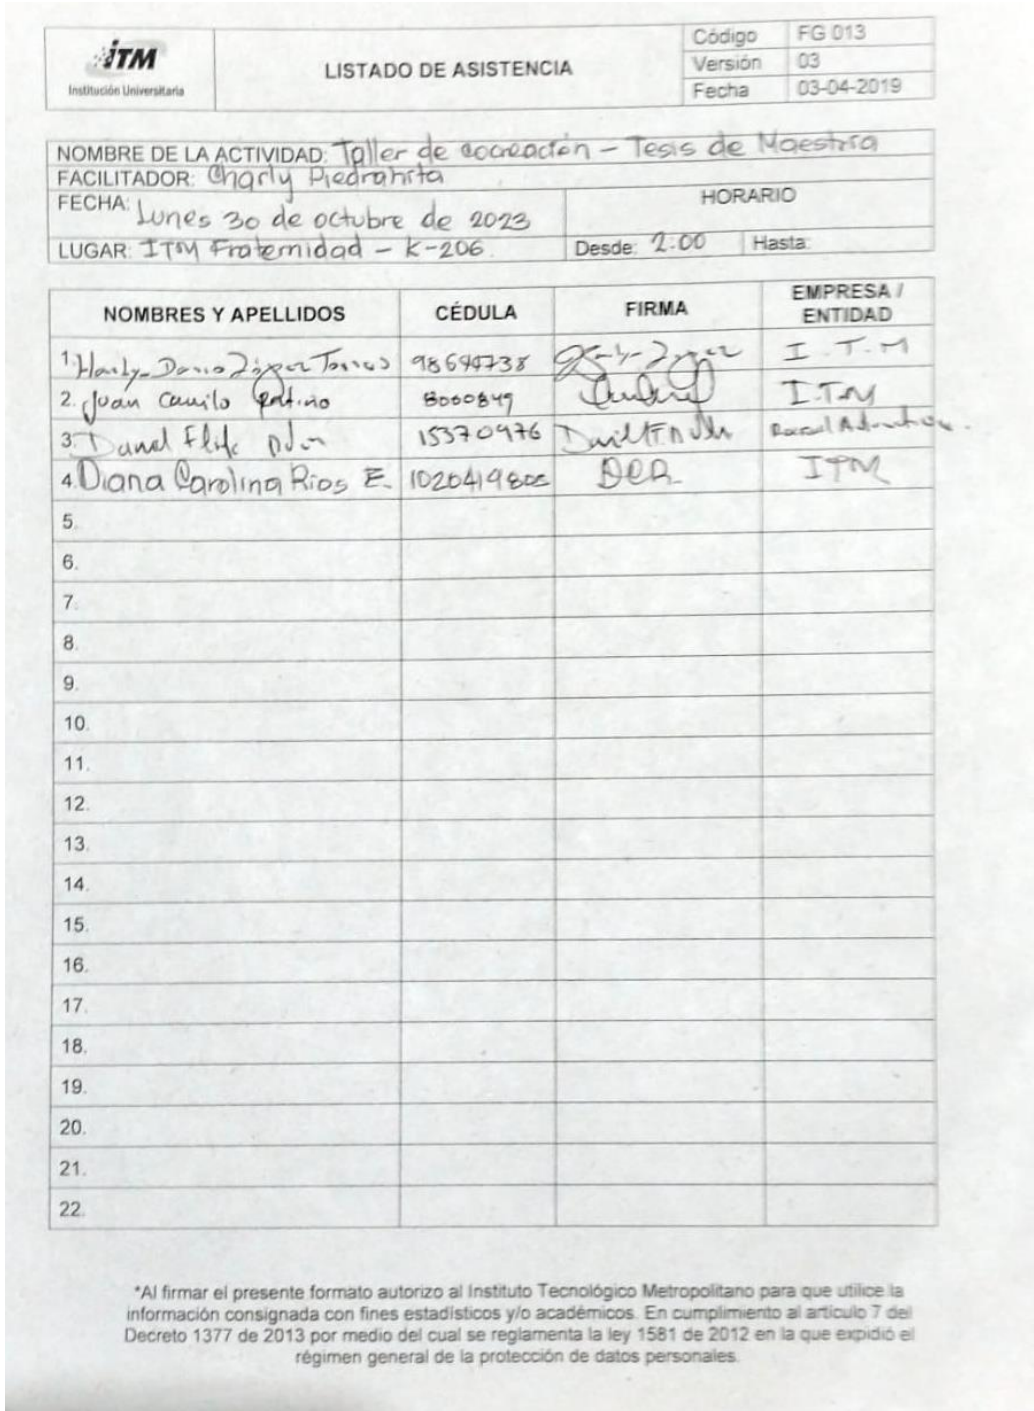 iTM
Institución Universitaria
LISTADO DE ASISTENCIA
Código FG 013
Versión 03
Fecha 03-04-2019
NOMBRE DE LA ACTIVIDAD: Taller de cocreación - Tesis de Maestría
FACILITADOR: Charly Piedrahita
FECHA: Lunes 30 de octubre de 2023
HORARIO
LUGAR: ITM Fraternidad - K-206. Desde: 2:00 Hasta:
NOMBRES Y APELLIDOS CÉDULA FIRMA EMPRESA / ENTIDAD
1. Torres I.T.M
2. Juan Camilo Patiño 8000849 I.TM
3. 15370976
4. Diana Carolina Rios E. DCR ITM
5.
6.
7.
8.
9.
10.
11.
12.
13.
14.
15.
16.
17.
18.
19.
20.
21.
22.
*Al firmar el presente formato autorizo al Instituto Tecnológico Metropolitano para que utilice la
información consignada con fines estadísticos y/o académicos. En cumplimiento al artículo 7 del
Decreto 1377 de 2013 por medio del cual se reglamenta la ley 1581 de 2012 en la que expidió el
régimen general de la protección de datos personales.